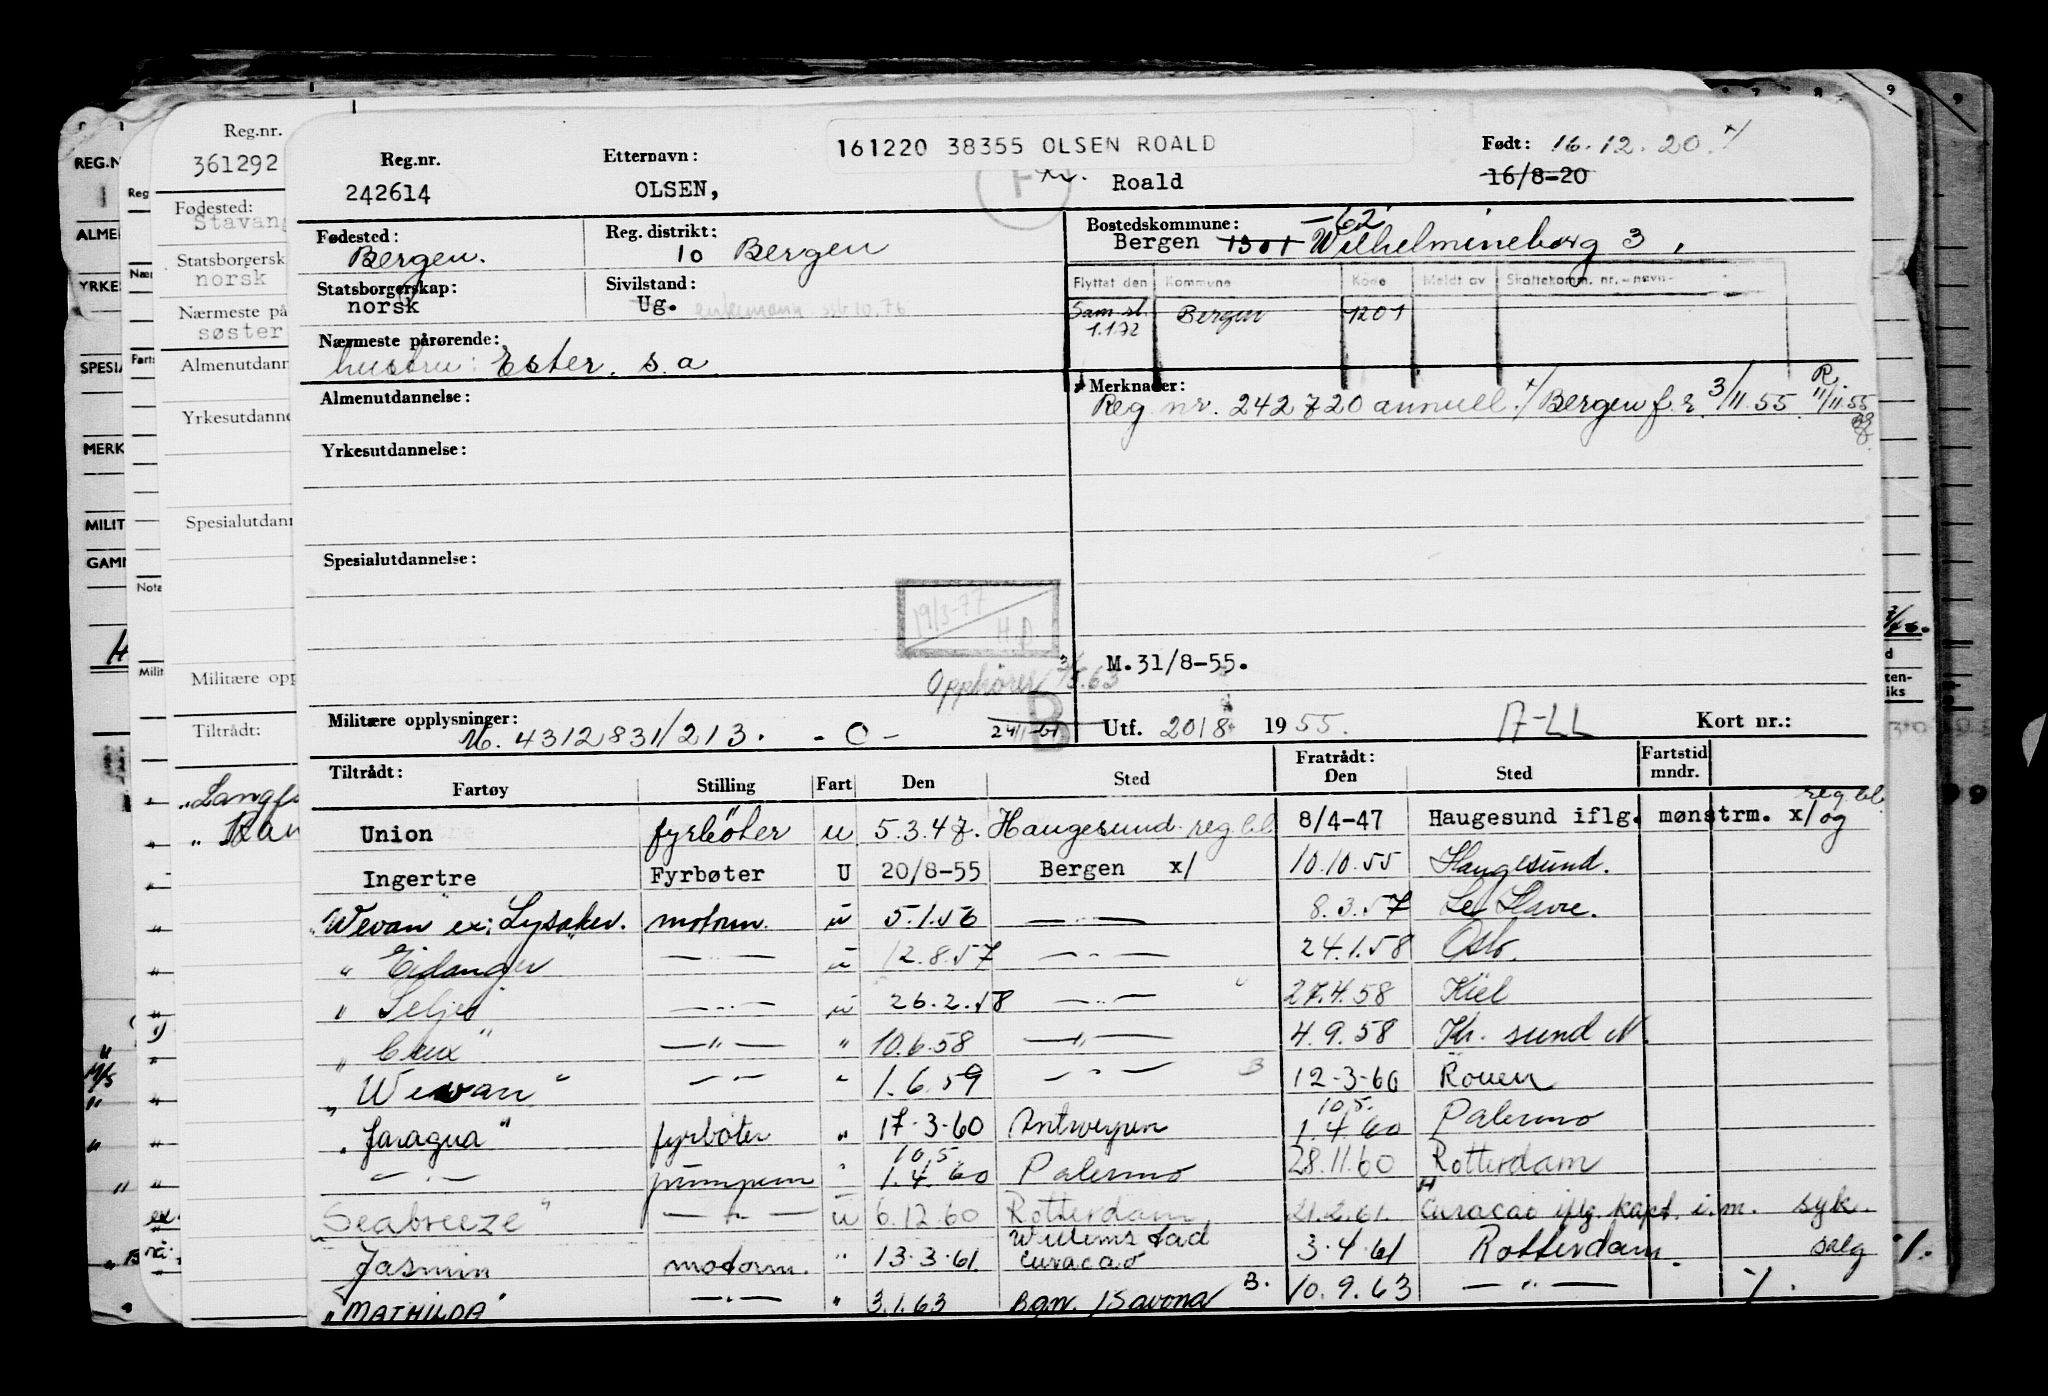 161220 38355 OLSEN ROALD
Reg.nr.
242614
Etternavn:
OLSEN,
Roald
Født: 16.12.20
16/8-20
Fødested:
Bergen.
Reg. distrikt:
10 Bergen
Bostedskommune: -62
Bergen 1301 Wilhelmineborg 3
Statsborgerskap:
norsk
Sivilstand:
Ug. enkemann ssb 10.76
Flyttet den Kommune Kode Meldt av Skattekomm. nr. - navn-
Sam.sl. 1.1.72 Bergen 1201
Nærmeste pårørende:
hustru: Ester. s.a.
Almenutdannelse:
Merknader:
Reg. nr. 242720 annull. Bergen f.r. 3/11.55. R. 11/11.55
Yrkesutdannelse:
Spesialutdannelse:
19/3-77
H.D.
M.31/8-55.
Opphører
B
Militære opplysninger:
M. 4312831/213. - O -
24/1-61
Utf. 20/8 1955.
A-LL
Kort nr.:
Tiltrådt:
Fartøy Stilling Fart Den Sted
Fratrådt:
Den Sted Fartstid mndr.
Union fyrbøter u 5.3.47. Haugesund reg.bl. 8/4-47 Haugesund iflg. mønstrm. x/ og reg.bl.
Ingertre Fyrbøter U 20/8-55 Bergen x/ 10.10.55 Haugesund.
"Wevan ex: Lysaker. motorm. u 5.1.56 —..— 8.3.57 Le Havre.
" Eidanger —..— u 12.8.57 —..— 24.1.58 Oslo.
" Seljes —..— u 26.2.58 —..— 27.4.58 Kiel
" Crux" —"— " 10.6.58 —"— 4.9.58 Kr. sund N.
" Wevan" —..— " 1.6.59 —"— B 12-3-60 Rouen
" Jaragua" fyrbøter " 17-3-60 Antwerpen 10.5. 1.4.60 Palermo
—..— pumpem " 10.5. 1.4.60 Palermo 28.11.60 Rotterdam
"Seabreeze" —"— u 6.12.60 Rotterdam 21.2.61. Curacao iflg. kapt. i.m. syk.
" Jasmin motorm. " 13-3-61. Willemstad Curacao 3.4.61 Rotterdam. salg
"MATHILDA" —..— " 3.1.63 Bgn. / Savona B. 10.9.63 —"— /.
Reg.nr.
361292
Fødested:
Stavang
Statsborgersk
norsk
Nærmeste på
søster
Almenutdann
Yrkesutdanne
Spesialutdann
Militære opp
Tiltrådt:
REG.N
ALME
YRKES
SPESIA
MERK
MILIT
GAMM
Reg
Nær
Farts
Nota
Milit